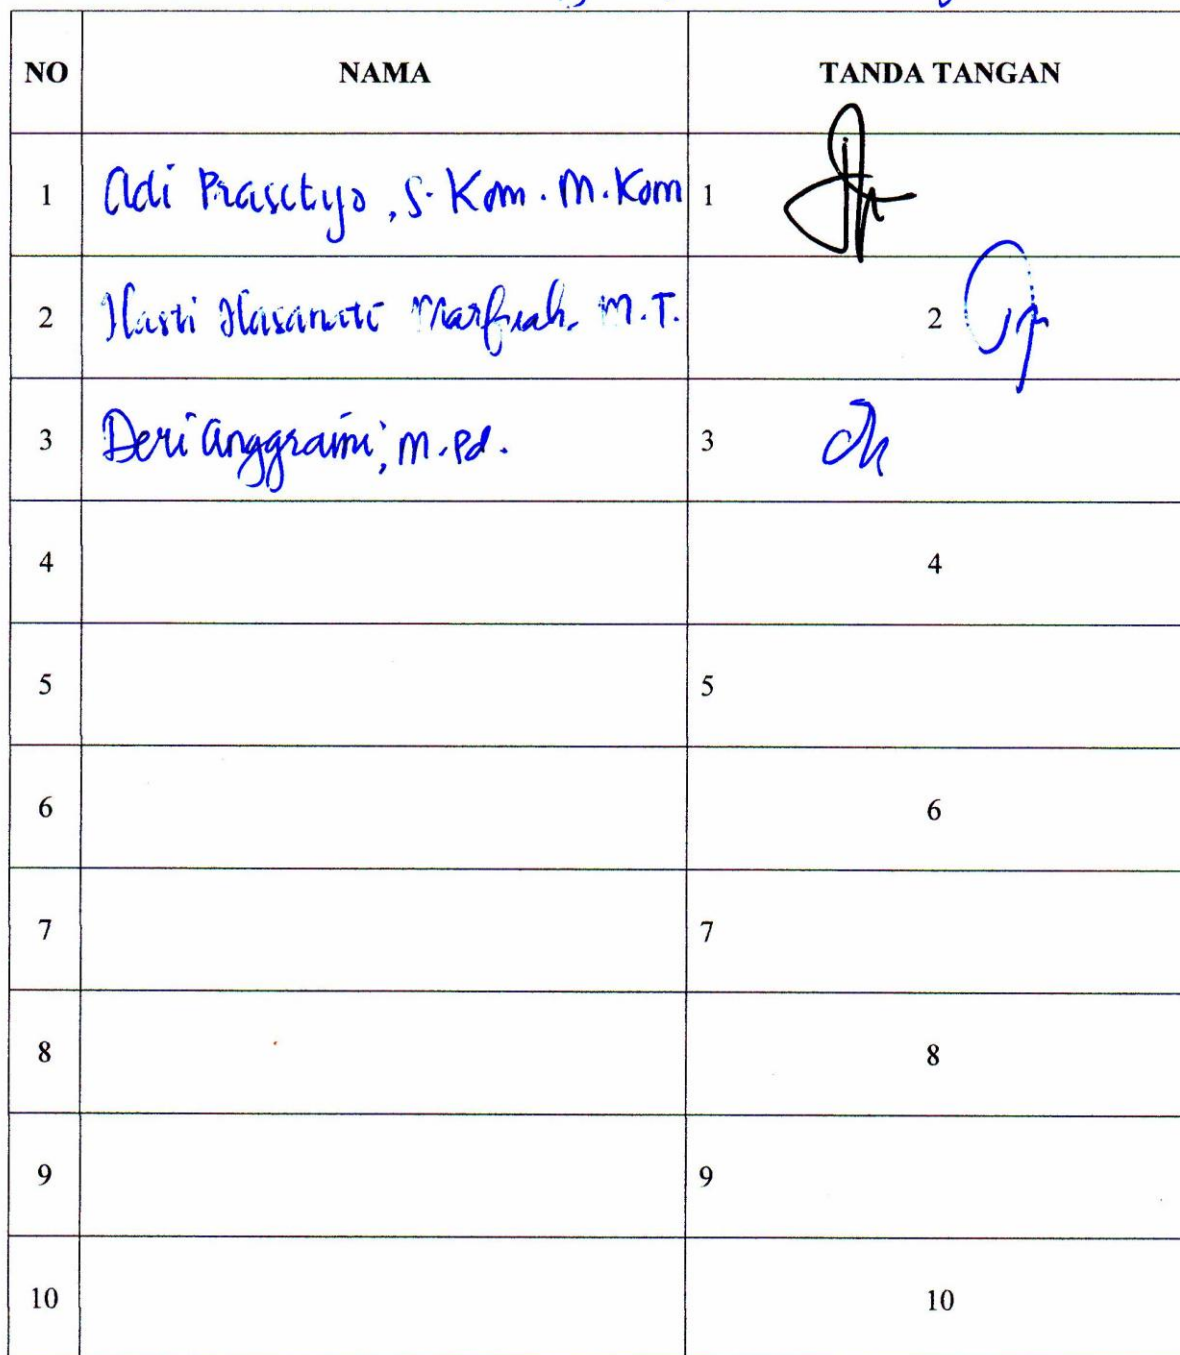 NO NAMA TANDA TANGAN
1 Adi Prasetyo, S.Kom. M.Kom 1
2 Hasti Hasanati Marfuah, M.T. 2
3 Deri Anggraini, M.Pd. 3
4 4
5 5
6 6
7 7
8 8
9 9
10 10